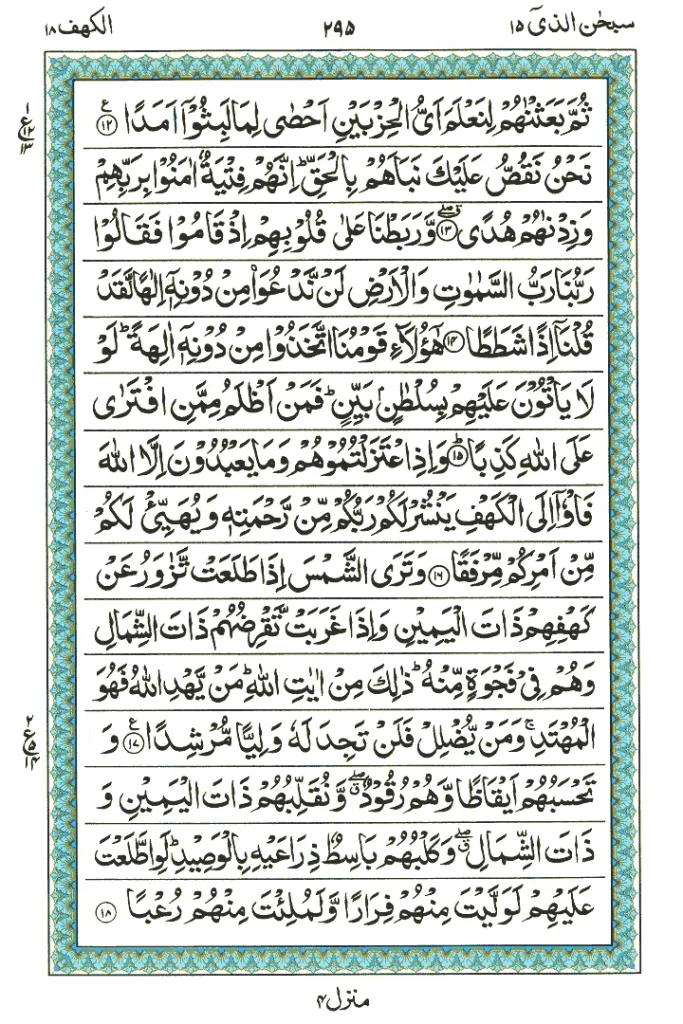 سبحٰن الذیٓ ۱۵
۲۹۵
الكهف ۱۸
ثُمَّ بَعَثْنٰهُمْ لِنَعْلَمَ اَیُّ الْحِزْبَیْنِ اَحْصٰی لِمَا لَبِثُوْۤا اَمَدًا ۟۠ ۱۲ ع
نَحْنُ نَقُصُّ عَلَیْكَ نَبَاَهُمْ بِالْحَقِّ ؕ اِنَّهُمْ فِتْیَةٌ اٰمَنُوْا بِرَبِّهِمْ
وَزِدْنٰهُمْ هُدًی ۱۳ وَّرَبَطْنَا عَلٰی قُلُوْبِهِمْ اِذْ قَامُوْا فَقَالُوْا
رَبُّنَا رَبُّ السَّمٰوٰتِ وَالْاَرْضِ لَنْ نَّدْعُوَا۠ مِنْ دُوْنِهٖۤ اِلٰهًا لَّقَدْ
قُلْنَاۤ اِذًا شَطَطًا ۱۴ هٰۤؤُلَآءِ قَوْمُنَا اتَّخَذُوْا مِنْ دُوْنِهٖۤ اٰلِهَةً ؕ لَوْ
لَا یَاْتُوْنَ عَلَیْهِمْ بِسُلْطٰنٍۭ بَیِّنٍ ؕ فَمَنْ اَظْلَمُ مِمَّنِ افْتَرٰی
عَلَی اللّٰهِ كَذِبًا ؕ ۱۵ وَاِذِ اعْتَزَلْتُمُوْهُمْ وَمَا یَعْبُدُوْنَ اِلَّا اللّٰهَ
فَاْوٗۤا اِلَی الْكَهْفِ یَنْشُرْ لَكُمْ رَبُّكُمْ مِّنْ رَّحْمَتِهٖ وَیُهَیِّئْ لَكُمْ
مِّنْ اَمْرِكُمْ مِّرْفَقًا ۱۶ وَتَرَی الشَّمْسَ اِذَا طَلَعَتْ تَّزٰوَرُ عَنْ
كَهْفِهِمْ ذَاتَ الْیَمِیْنِ وَاِذَا غَرَبَتْ تَّقْرِضُهُمْ ذَاتَ الشِّمَالِ
وَهُمْ فِیْ فَجْوَةٍ مِّنْهُ ؕ ذٰلِكَ مِنْ اٰیٰتِ اللّٰهِ ؕ مَنْ یَّهْدِ اللّٰهُ فَهُوَ
الْمُهْتَدِ ۚ وَمَنْ یُّضْلِلْ فَلَنْ تَجِدَ لَهٗ وَلِیًّا مُّرْشِدًا ۱۷ ع وَ
تَحْسَبُهُمْ اَیْقَاظًا وَّهُمْ رُقُوْدٌ ۖۗ وَّنُقَلِّبُهُمْ ذَاتَ الْیَمِیْنِ وَ
ذَاتَ الشِّمَالِ ۖۗ وَكَلْبُهُمْ بَاسِطٌ ذِرَاعَیْهِ بِالْوَصِیْدِ ؕ لَوِ اطَّلَعْتَ
عَلَیْهِمْ لَوَلَّیْتَ مِنْهُمْ فِرَارًا وَّلَمُلِئْتَ مِنْهُمْ رُعْبًا ۱۸
۱ ع ۱۲ ۱۳
۲ ع ۵ ۱۴
منزل ۴